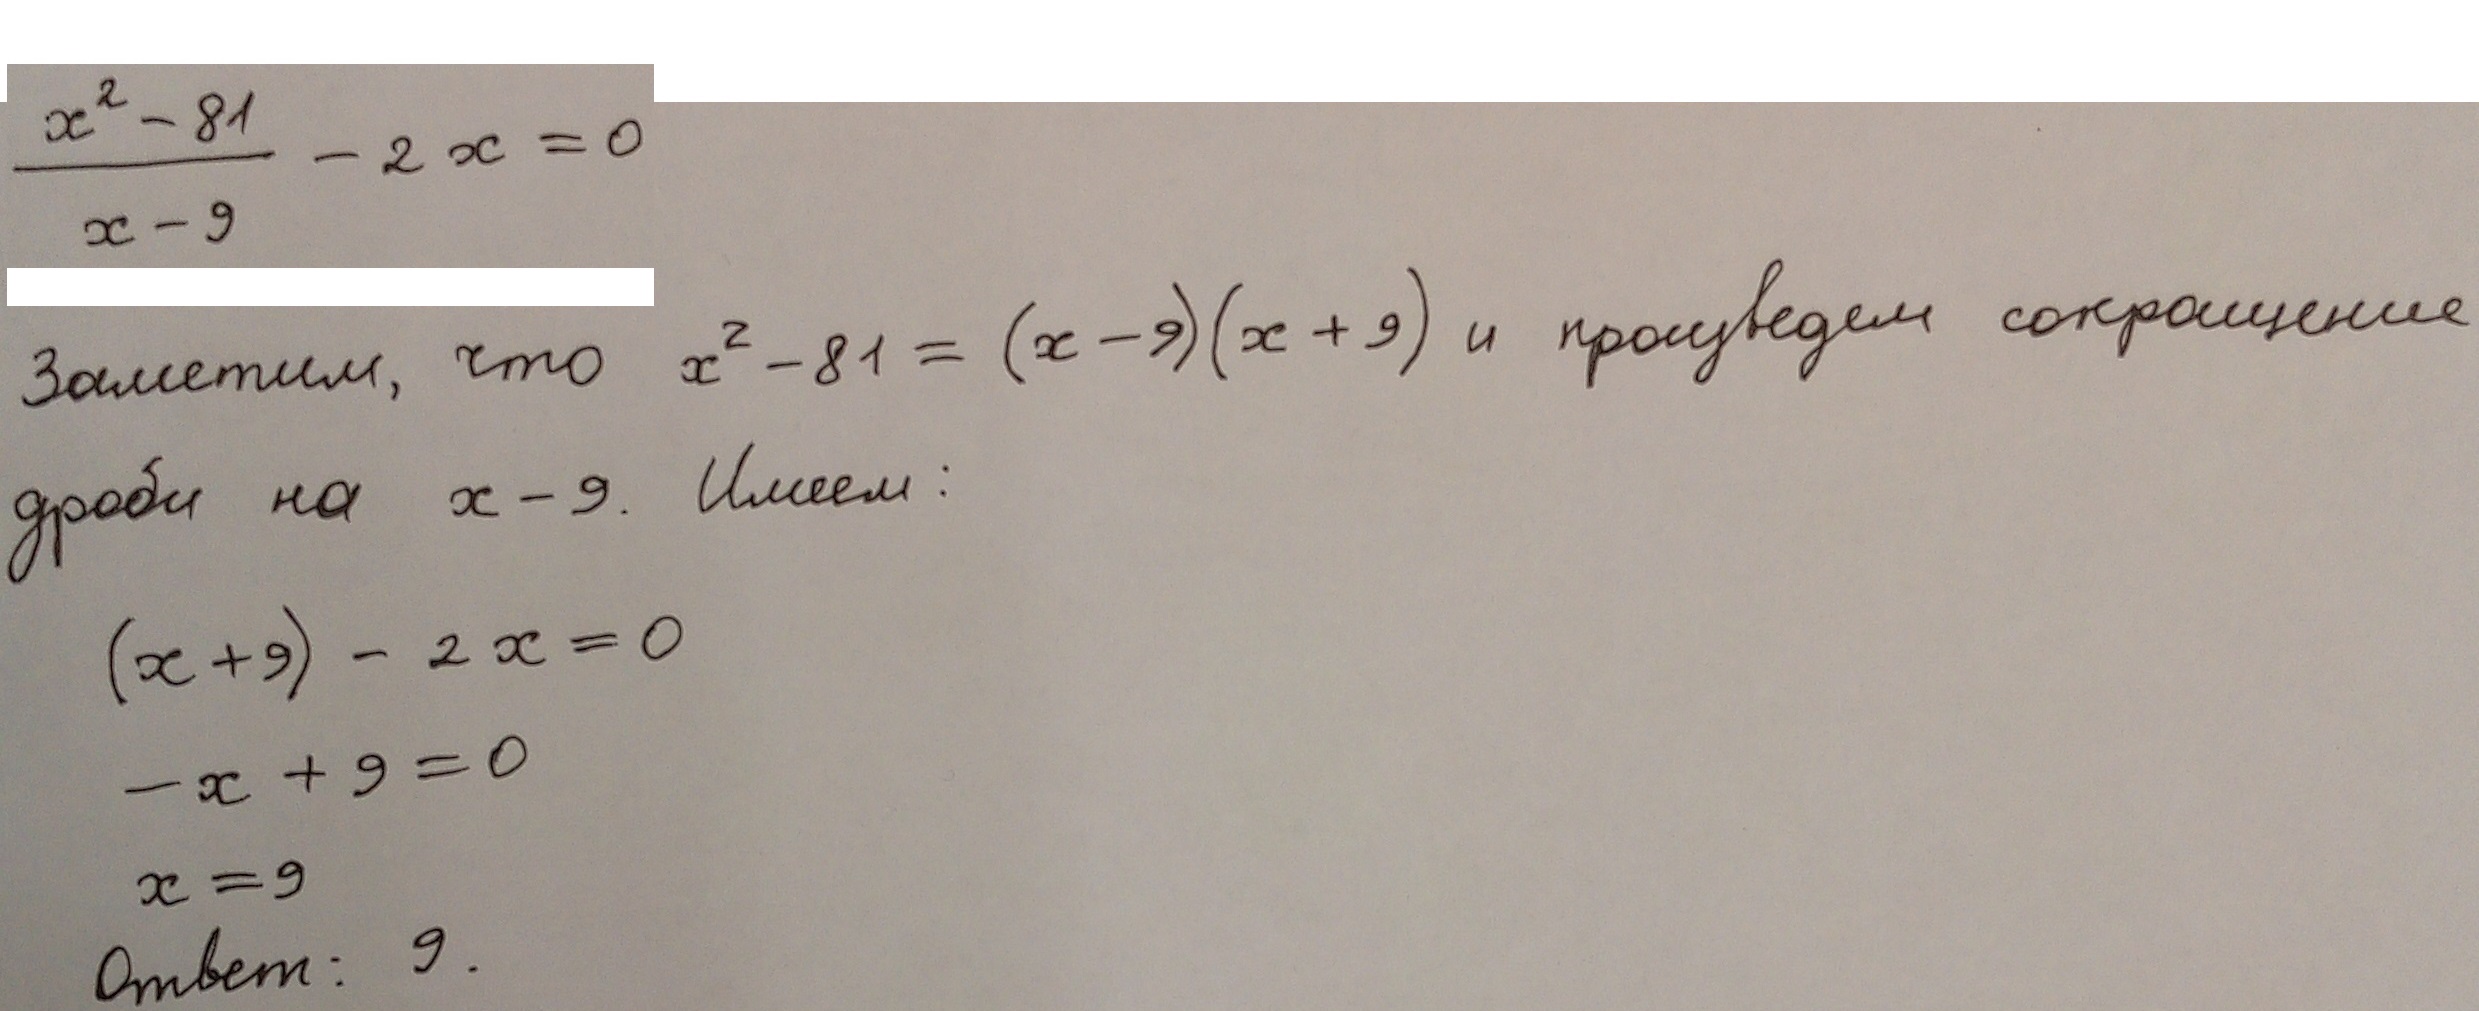 x² - 81
x - 9
- 2x = 0
Заметим, что x² - 81 = (x - 9)(x + 9) и произведем сокращение
дроби на x - 9. Имеем:
(x + 9) - 2x = 0
-x + 9 = 0
x = 9
Ответ: 9.